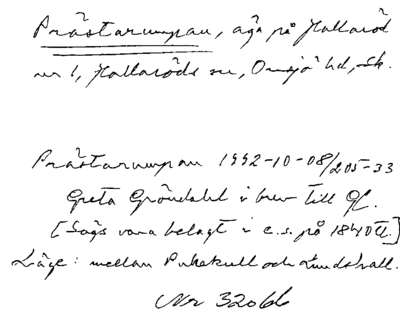 Prästarumpan, äga på Hallaröd
nr 1, Hallaröds sn, Onsjö hd, Sk.
Prästarumpan 1992-10-08/205-33
Greta Gröndahl i brev till GL.
[Sägs vara belagt i e.s. på 1840 tl.]
Läge: mellan Pukakull och Lundshall.
Nr 32066